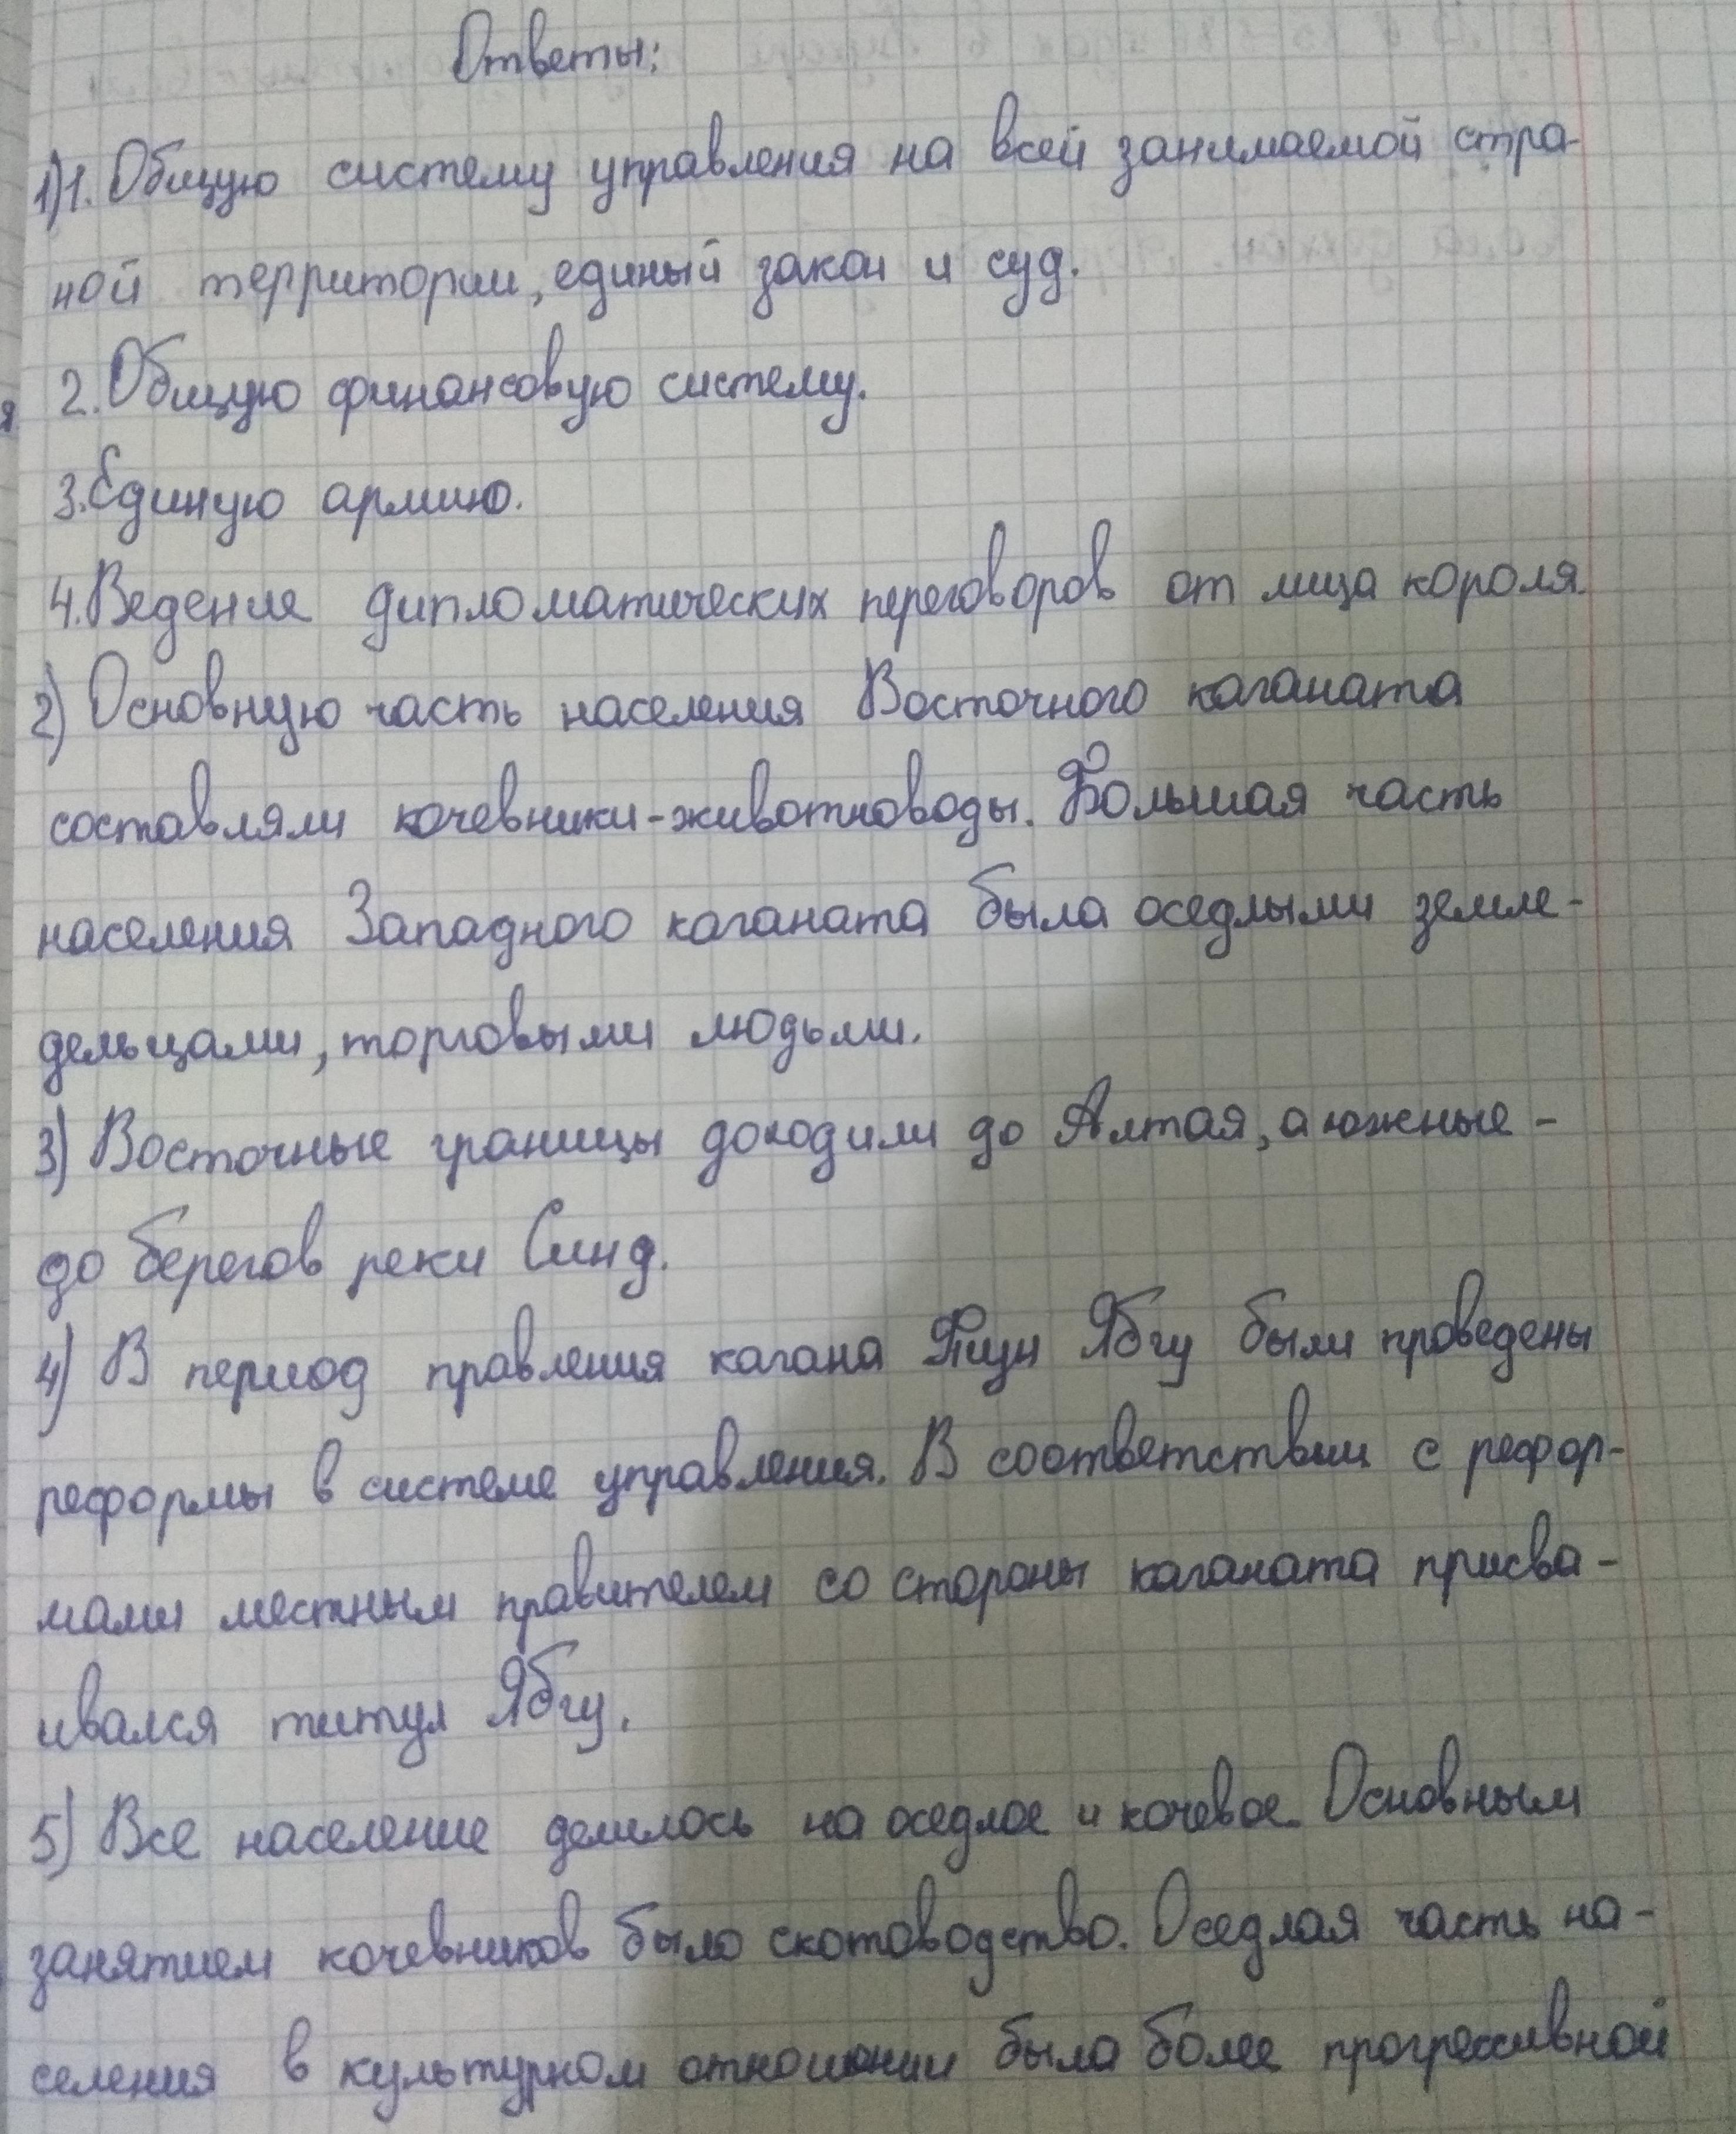 Ответы:
1)1. Общую систему управления на всей занимаемой стра-
ной территории, единый закон и суд.
2. Общую финансовую систему.
3. Единую армию.
4. Ведение дипломатических переговоров от лица короля.
2) Основную часть населения Восточного каганата
составляли кочевники-животноводы. Большая часть
населения Западного каганата была оседлыми земле-
дельцами, торговыми людьми.
3) Восточные границы доходили до Алтая, а южные -
до берегов реки Синд.
4) В период правления кагана Тун Ябгу были проведены
реформы в системе управления. В соответствии с рефор-
мами местным правителем со стороны каганата присва-
ивался титул Ябгу.
5) Все население делилось на оседлое и кочевое. Основным
занятием кочевников было скотоводство. Оседлая часть на-
селения в культурном отношении была более прогрессивной